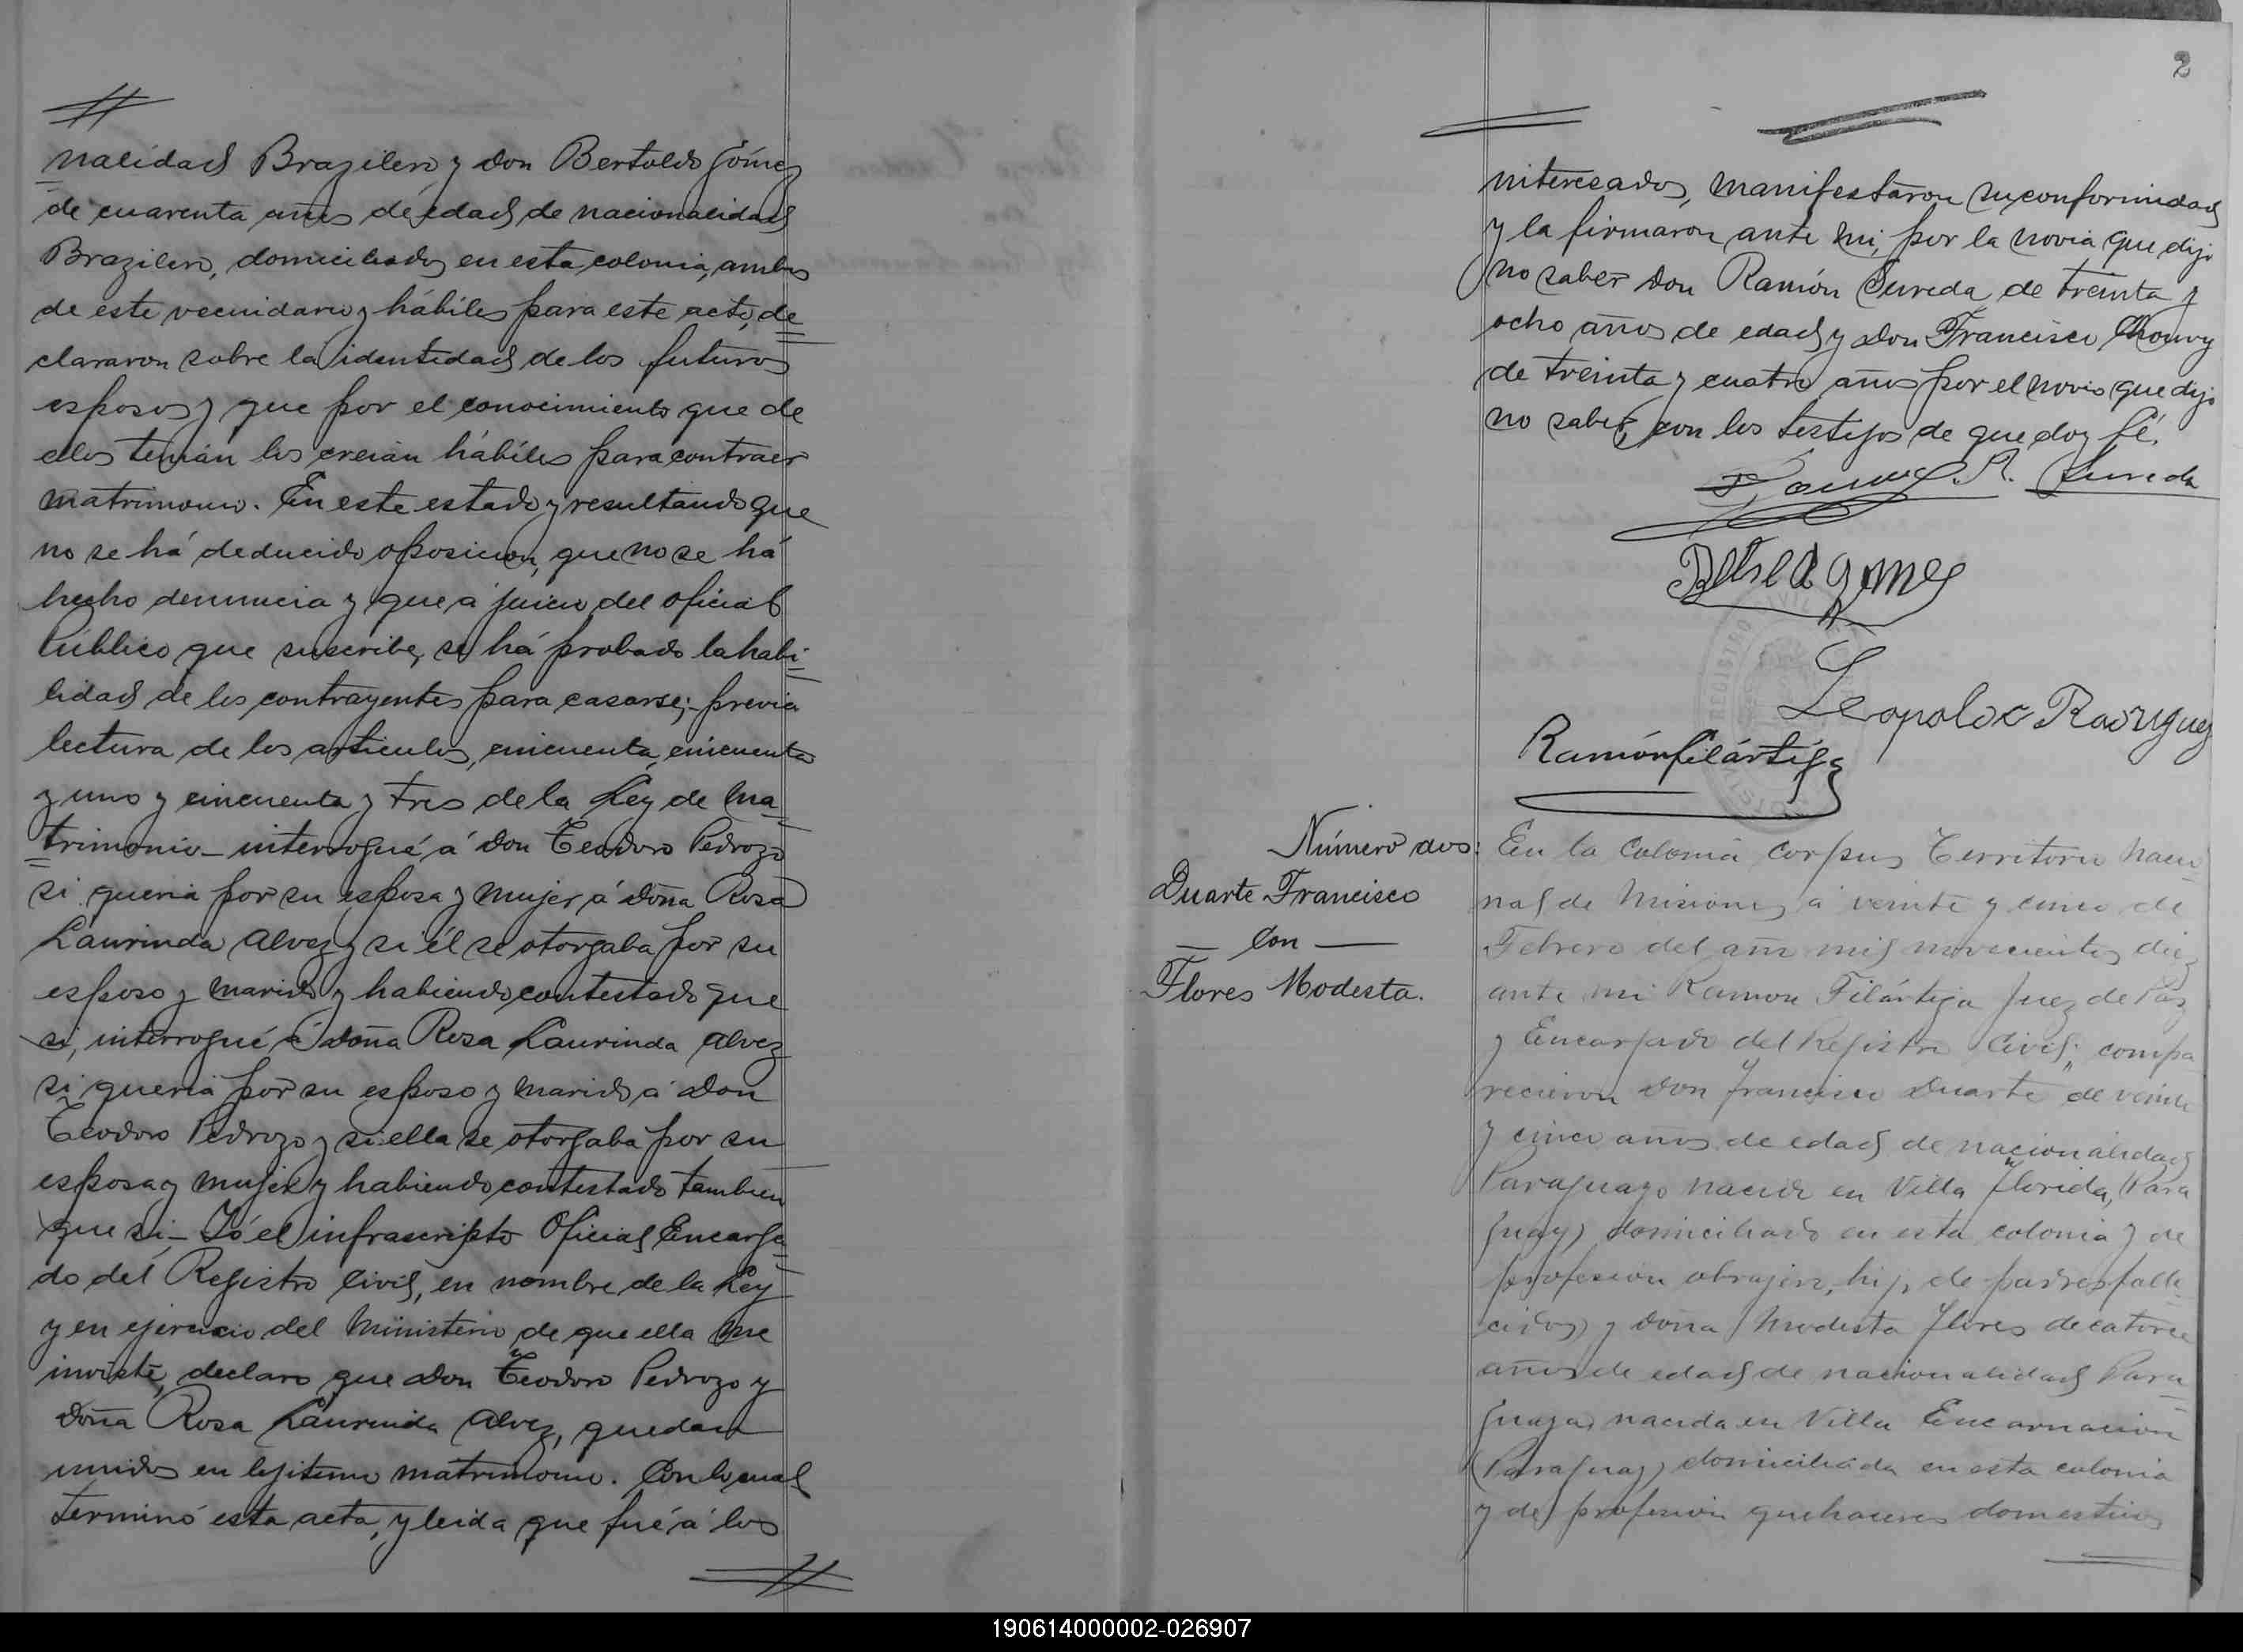 nalidad Brazilero y don Bertoldo Gómez
de cuarenta años de edad de nacionalidad
Brazilero, domiciliados en esta colonia, ambos
de este vecindario y hábiles para este acto, de
clararon sobre la identidad de los futuros
esposos y que por el conocimiento que de
ellos tenían los creían hábiles para contraer
matrimonio. En este estado y resultando que
no se há deducido oposicion, que no se há
hecho denuncia y que a juicio del oficial
Público que suscribe, se há probado la habi
lidad de los contrayentes para casarse; previa
lectura de los articulos, cincuenta, cincuenta
y uno y cincuenta y tres de la Ley de Ma
trimonio - interrogué á don Teodoro Pedrozo
si queria por su esposa y mujer á doña Rosa
Laurinda Alvez y si él se otorgaba por su
esposo y marido y habiendo contestado que
si, interrogué á doña Rosa Laurinda Alvez
si queria por su esposo y marido á don
Teodoro Pedrozo y si ella se otorgaba por su
esposa y mujer y habiendo contestado tambien
que si - Yó el infrascripto Oficial Encarga
do del Registro Civil, en nombre de la Ley
y en ejercicio del Ministerio de que ella me
inviste, declaro que don Teodoro Pedrozo y
doña Rosa Laurinda Alvez, quedan
unidos en lejitimo matrimonio. Con lo cual
terminó esta acta, y leida que fué á los
2
interesados, manifestaron su conformidad
y la firmaron ante mi, por la novia que dijo
no saber don Ramón Sureda de treinta y
ocho años de edad y don Francisco
de treinta y cuatro años por el novio que dijo
no saber, con los testigos de que doy fé.
R. Sureda
Gomes
Leopoldo Rodriguez
Ramón Filártiga
Número dos:
Duarte Francisco
— Con —
Flores Modesta.
En la Colonia Corpus Territorio Nacio
nal de Misiones, á veinte y cinco de
Febrero del año mil novecientos diez
ante mi Ramon Filártiga Juez de Paz
y Encargado del Registro Civil, compa
recieron don Francisco Duarte de veinte
y cinco años de edad de nacionalidad
Paraguayo nacido en Villa Florida, (Para
guay) domiciliado en esta colonia y de
profesion obrajero, hijo de padres falle
cidos) y doña Modesta Flores de catorce
años de edad de nacionalidad Para
guaya, nacida en Villa Encarnacion
(Paraguay) domiciliada en esta colonia
y de profesion quehaceres domesticos
190614000002-026907